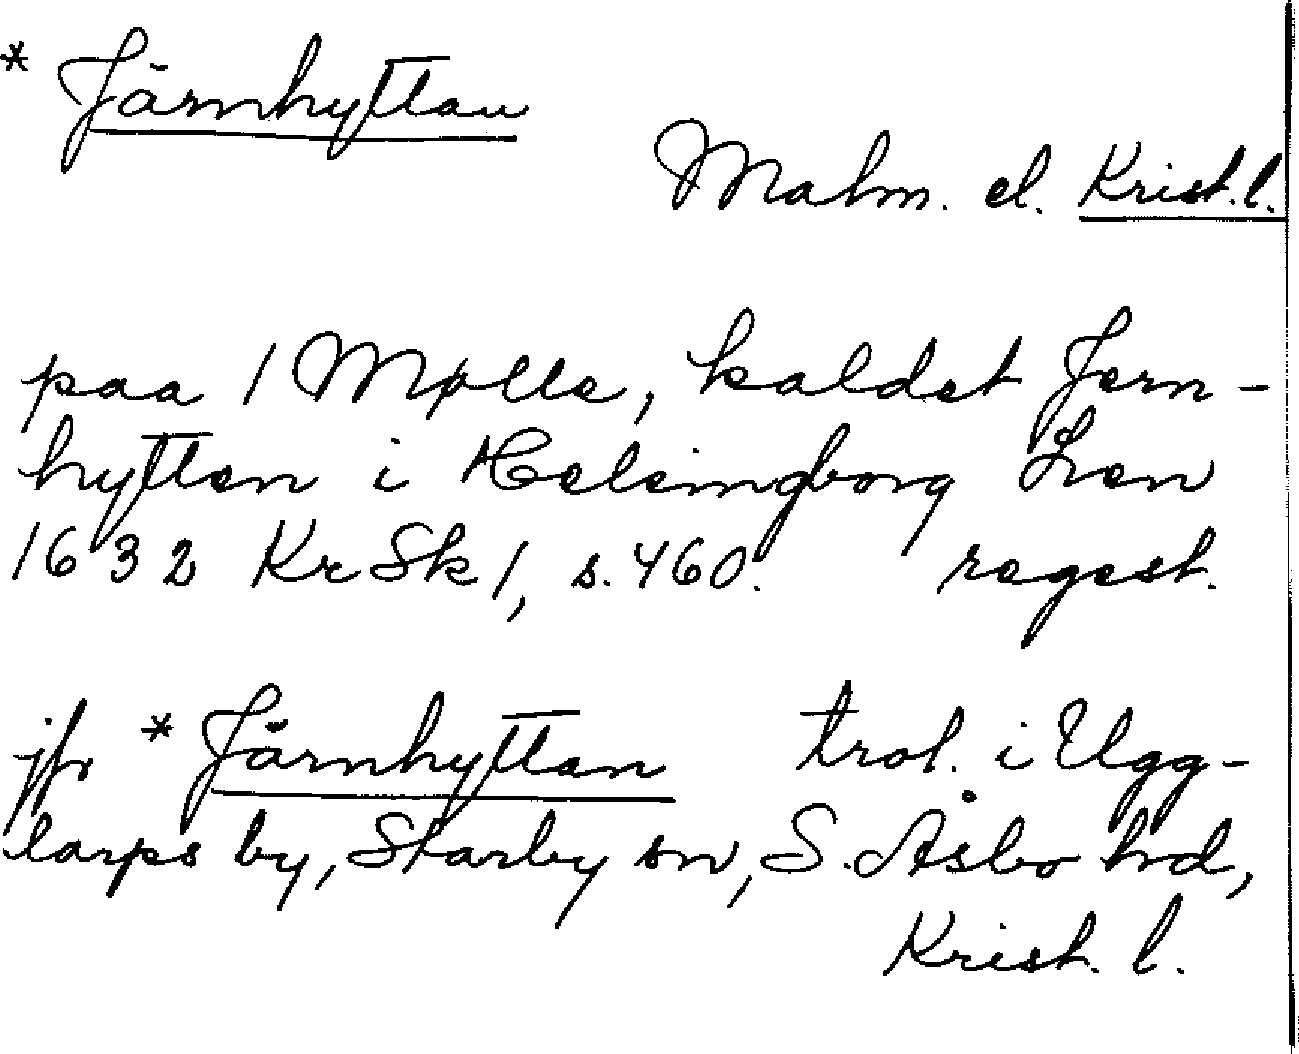 * Järnhyttan
Malm. el. Krist. l.
paa 1 Mølle, kaldet Jern-
hytten i Helsingborg Len
1632 KrSk 1, s. 460. regest.
jfr * Järnhyttan trol. i Ugg-
larps by, Starby sn, S. Åsbo hd,
Krist. l.